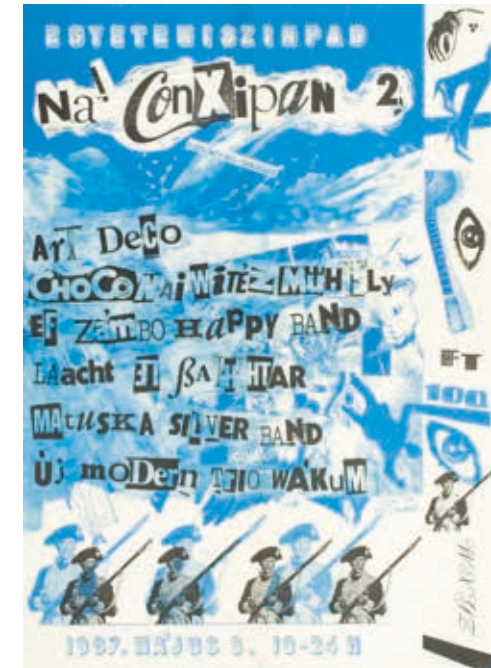 EGYETEMI SZINPAD
Na! ConXipan 2
ArT DeCo
CHOCO NAi WiTÉZ MŰHELy
EF ZÁMBO HAPPY BAND
LAacht EL
MATUSKA SILVER BAND
Új moDern TRIO WAKUM
FT
100
1987. MÁJUS 9. 19-24 H